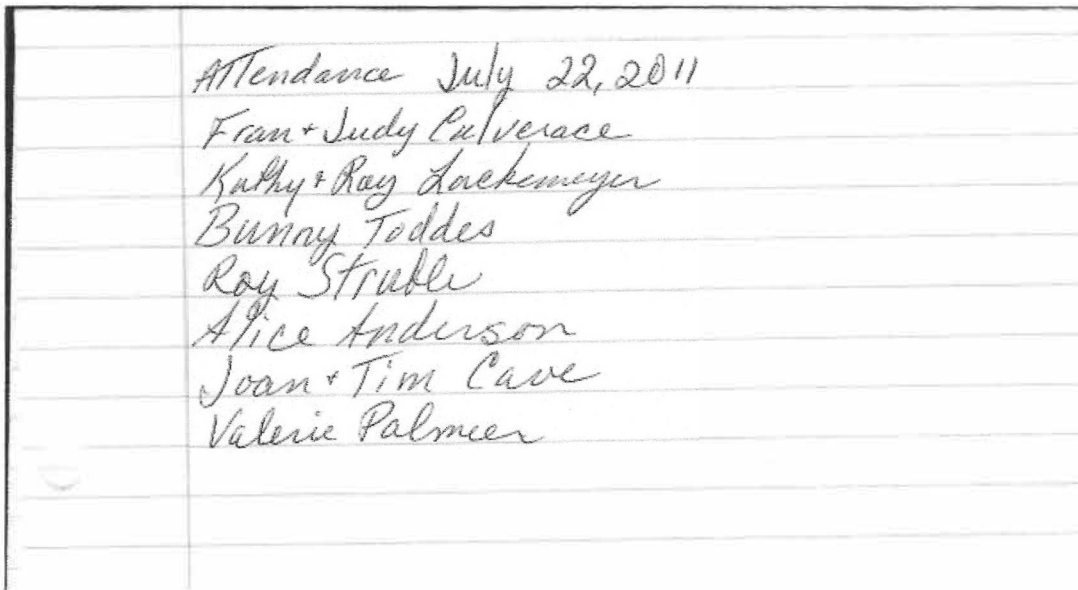 Attendance July 22, 2011
Fran + Judy Calverace
Kathy + Ray Lockemeyer
Bunny Toddes
Ray Struble
Alice Anderson
Joan + Tim Cave
Valerie Palmeer